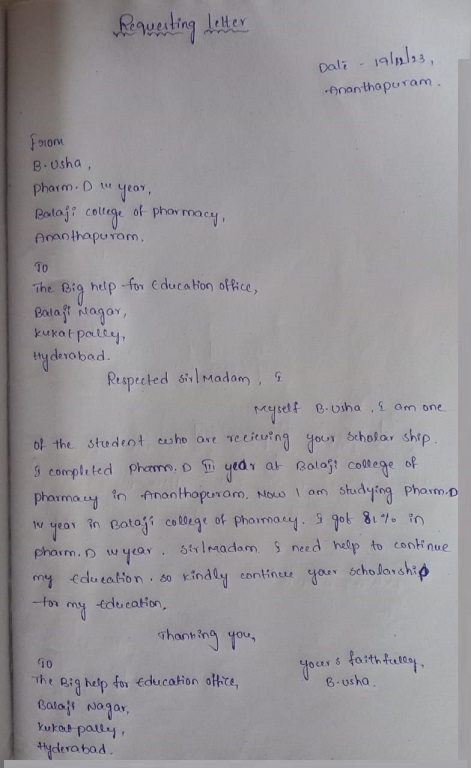 Requesting letter
Date - 19/12/23,
Ananthapuram.
From
B. Usha,
Pharm. D IV year,
Balaji college of pharmacy,
Ananthapuram.
To
The Big help for Education office,
Balaji Nagar,
Kukatpally,
Hyderabad.
Respected Sir/Madam,
Myself B. Usha, I am one
of the student who are recieving your Scholar ship.
I completed Pharm. D III year at Balaji college of
pharmacy in Ananthapuram. Now I am studying Pharm.D
IV year in Balaji college of pharmacy. I got 81% in
Pharm. D year. Sir/Madam I need help to continue
my Education. so kindly continue your scholarship
for my Education.
Thanking you,
yours faithfully,
B. Usha.
To
The Big help for Education office,
Balaji Nagar,
Kukatpally,
Hyderabad.